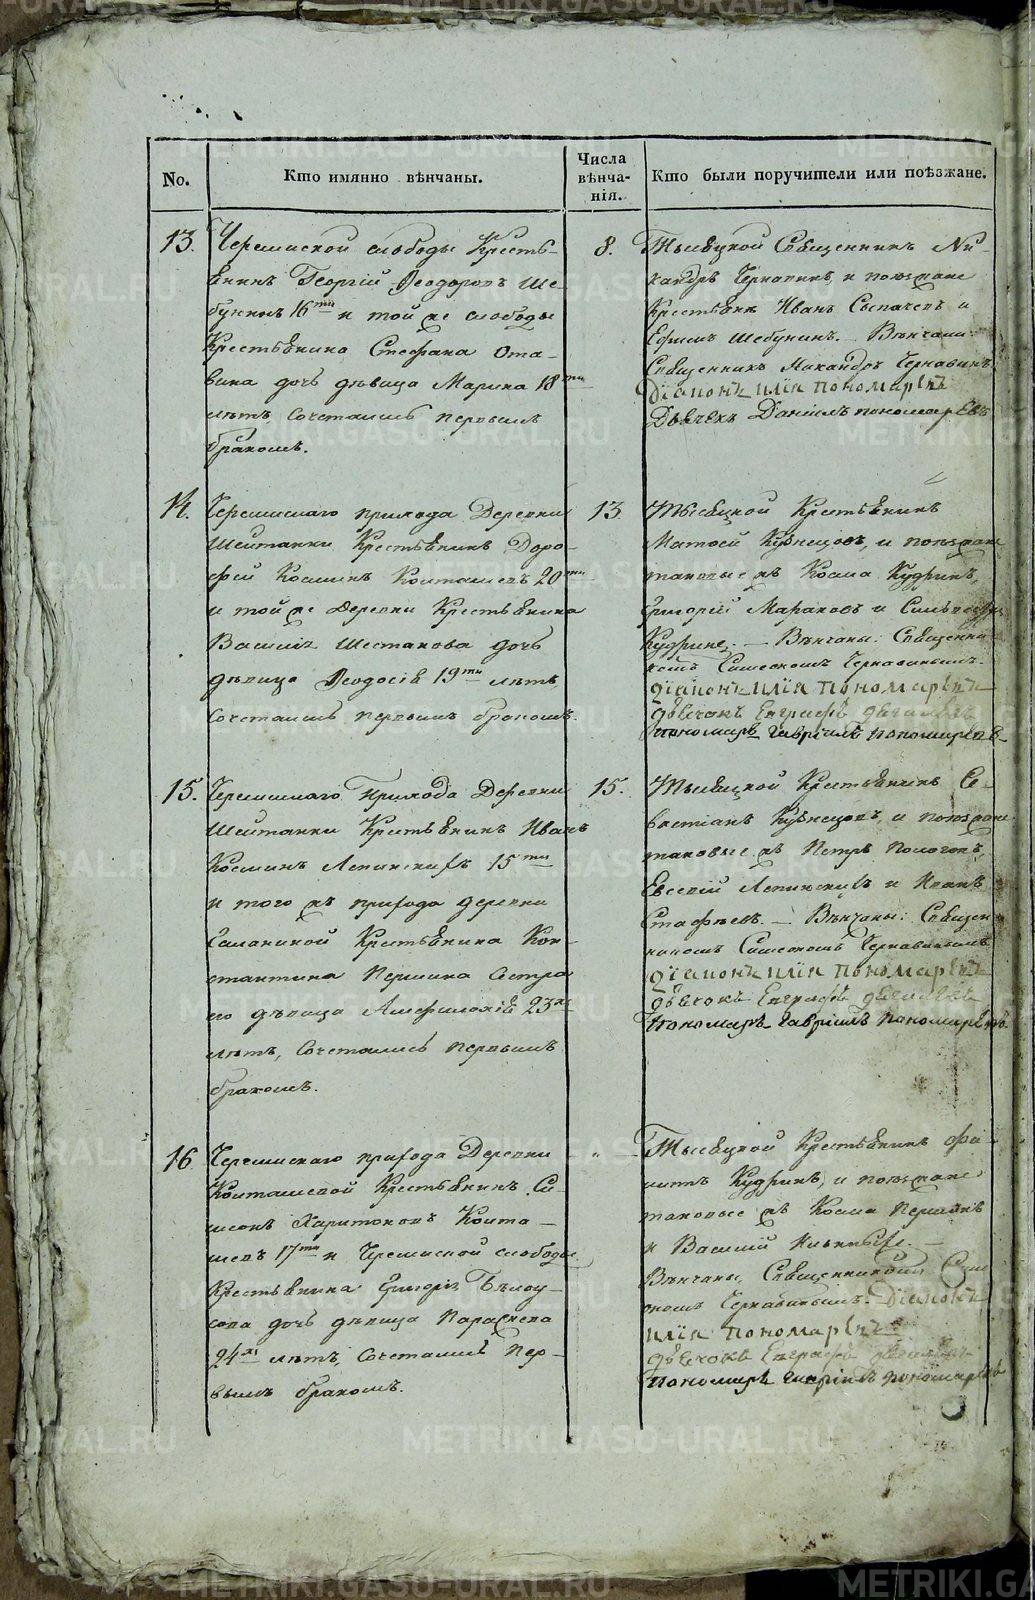 No.
Кто имянно вѣнчаны.
Числа
вѣнча-
нія.
Кто были поручители или поѣзжане.
13.
Черемиской слободы Кресть-
янинъ Георгій Ѳеодоровъ Ше-
бунинъ 16ти и той же слободы
Крестьянина Стефана Ота-
вина дочь дѣвица Марина 18ти
лѣтъ, сочетались первымъ
бракомъ.
8.
Тысяцкой Священникъ Ни-
кандръ Чернавинъ, и поѣзжане
Крестьяне Иванъ Сыпачевъ и
Ефимъ Шебунинъ. Вѣнчали:
Священникъ Никандръ Чернавинъ
Діаконъ Илія Пономаревъ
Дьячекъ Даніилъ пономаревъ
14.
Черемискаго прихода Деревни
Шайтанки Крестьянинъ Доро-
фей Косминъ Колташевъ 20ти
и той же Деревни Крестьянина
Василія Шестакова дочь
дѣвица Ѳеодосія 19ти лѣтъ,
сочетались первымъ бракомъ.
13
Тысяцкой Крестьянинъ
Матѳей Кузнецовъ, и поѣзжане
таковые жъ Косма Кудринъ,
Григорій Мараковъ и
Кудрине, — Вѣнчаны: Священни-
комъ Симеономъ Чернавинымъ.
діаконъ Илія Пономаревъ
дьячокъ Евграфъ
пономарь Гавріилъ пономаревъ
15.
Черемискаго Прихода Деревни
Шайтанки Крестьянинъ Иванъ
Косминъ Лепинскихъ 15ти
и того жъ прихода деревни
Галаниной Крестьянина Кон-
стантина Першина Сестра
его дѣвица Амфилохія 23хъ
лѣтъ, сочетались первымъ
бракомъ.
15.
Тысяцкой Крестьянинъ Се-
вастіанъ Кузнецовъ, и поѣзжане
таковые жъ Петръ
Евсевій Лепинскихъ и Иванъ
Стафѣевъ. — Вѣнчаны: Священ-
никомъ Симеономъ Чернавинымъ
діаконъ Илія Пономаревъ
дьячокъ Евграфъ
Пономарь Гавріилъ пономаревъ
16
Черемискаго прихода Деревни
Колташевой Крестьянинъ Си-
меонъ Харитоновъ Колта-
шевъ 17ти и Черемиской слободы
Крестьянина Григорія Бѣлоу-
сова дочь дѣвица Параскева
24хъ лѣтъ, сочетались пер-
вымъ бракомъ.
"
Тысяцкой Крестьянинъ Фи-
липъ Кудринъ, и поѣзжане
таковые жъ Косма Першинъ
и Василій
Вѣнчаны Священникомъ Сим
еономъ Чернавинымъ. Діаконъ
Илія пономаревъ
дьячокъ Евграфъ
пономарь Гавріилъ пономаревъ
METRIKI.GASO-URAL.RU